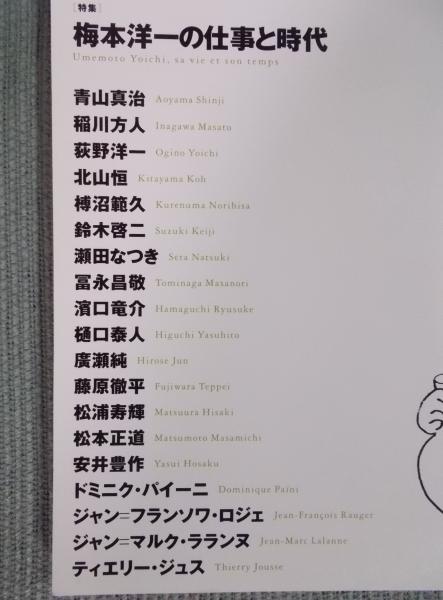 [特集]
梅本洋一の仕事と時代
Umemoto Yoichi, sa vie et son temps
青山真治 Aoyama Shinji
稲川方人 Inagawa Masato
荻野洋一 Ogino Yoichi
北山恒 Kitayama Koh
榑沼範久 Kurenuma Norihisa
鈴木啓二 Suzuki Keiji
瀬田なつき Seta Natsuki
冨永昌敬 Tominaga Masanori
濱口竜介 Hamaguchi Ryusuke
樋口泰人 Higuchi Yasuhito
廣瀬純 Hirose Jun
藤原徹平 Fujiwara Teppei
松浦寿輝 Matsuura Hisaki
松本正道 Matsumoto Masamichi
安井豊作 Yasui Hosaku
ドミニク・パイーニ Dominique Païni
ジャン=フランソワ・ロジェ Jean-François Rauger
ジャン=マルク・ラランヌ Jean-Marc Lalanne
ティエリー・ジュス Thierry Jousse